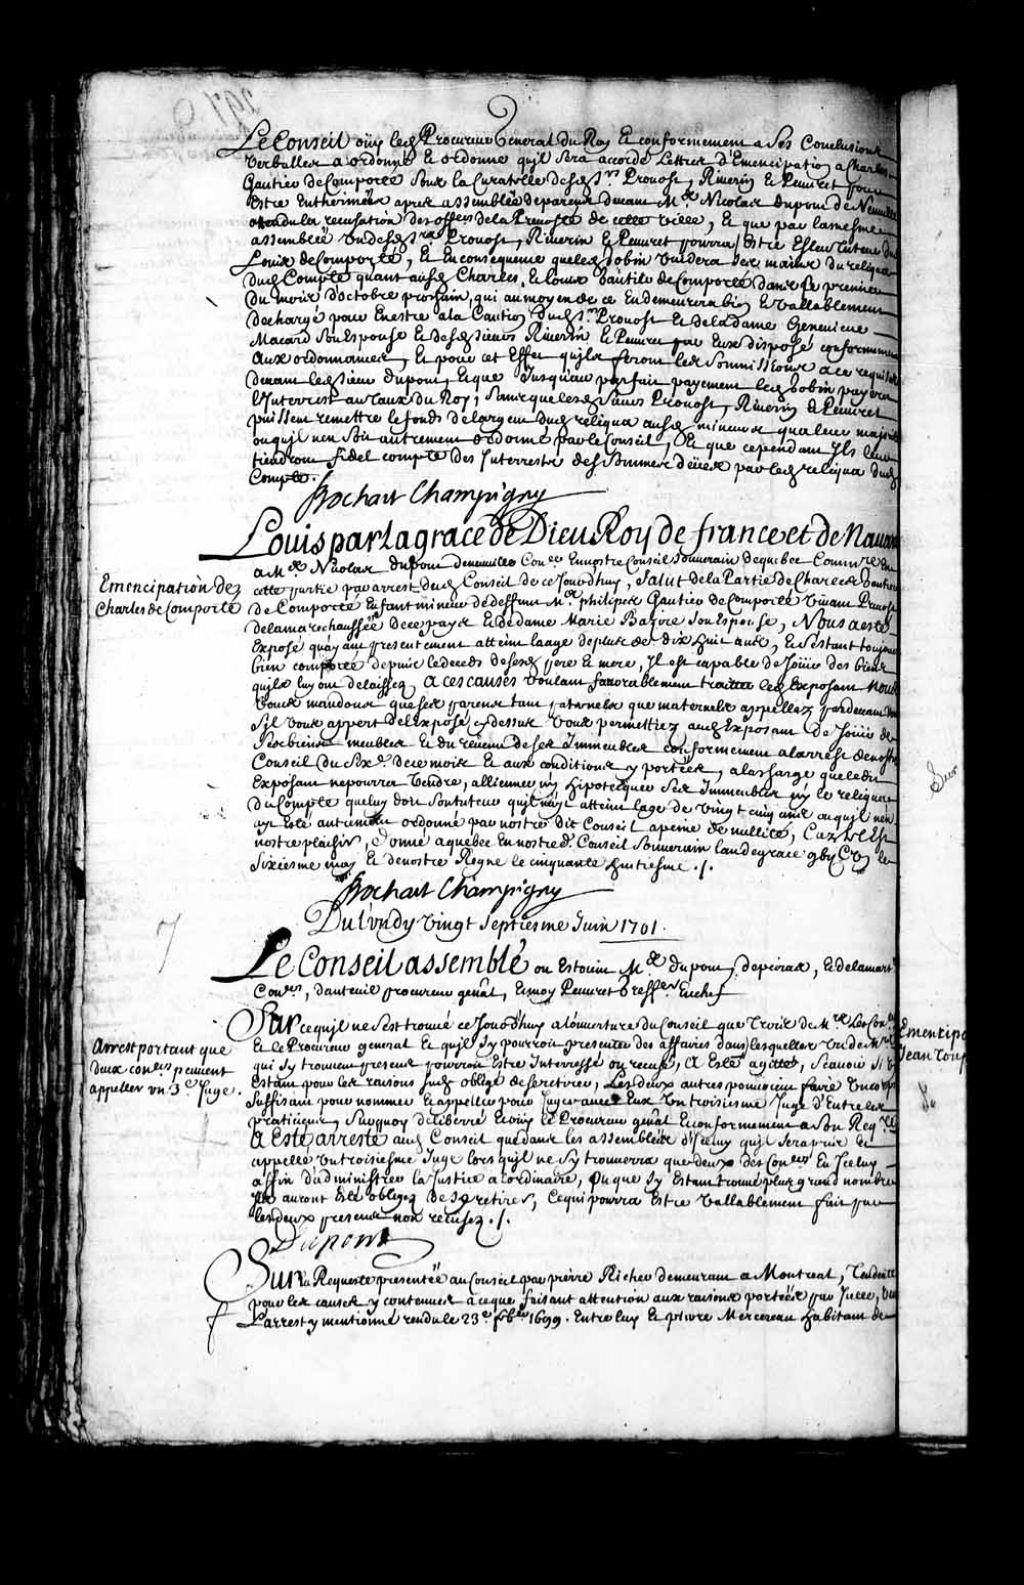 Le Conseil oüy led Procureur General du Roy Et conformement a Ses Conclusions
Verballes a ordonné Et ordonne quil Sera accordé Lettres d'Emencipation a Charles
Gautier deComporté Sous la Curatelle desd Srs Prouost, Riuerin Et Peuuret pour
Estre Entherinées apres assemblée deparens deuant Me Nicolas dupont de Neuuille
attendu la recusation des offers dela Preuosté de cette Ville, Et que par lamesme
assemblée Vn desd Srs Prouost, Riuerin Et Peuuret pourra Estre Esleu tuteur dud
Louis deComporté, Et En consequence queled Gobin Vuidera Ses mains du reliqua
dud Compte quant ausd Charles, Et Louis Gautier deComporté dans le premier
du mois d'octobre prochain, qui au moyen de ce En demeurera bien Et Vallablement
dechargé pour En estre ala Caution dud Sr Prouost Et dela dame Geneuieue
Macard Son Espouse Et desd Sieurs Riuerin Et Peuuret par Eux disposé conformement
aux ordonnances, Et pour cet Effet quils feront les Sommissions a ce requises
deuant led Sieur dupont, Et que Jusqu'au parfait payement led Gobin payera
l'Interrest au Taux du Roy, Sans que lesd Sieurs Prouost, Riuerin Et Peuuret
puissent remettre le fonds delargent dud reliqua ausd mineurs qua leur majorité
ou quil n'en Soit autrement ordonné par le Conseil, Et que cependant Ils leur
tiendront fidel compte des Interrests des Sommes deües par led reliqua dud
Compte.
Bochart Champigny
Louis par La grace de Dieu Roy de france et de Nauarre
a Me Nicolas dupont deneuuille Coner En nostre Conseil Souuerain dequebec Commre En
cette partie par arrest dud Conseil de ce Jourdhuy, Salut de la Partie de Charles Gautier
Emencipation de
Charles de Comporté
de Comporté Enfant mineur de deffunt Me philipes Gautier de Comporté Viuant Preuost
de la mareschaussée de ce pays Et de dame Marie Bazire Son Espouse, Nous a esté
Exposé quayant presentement atteint laage de plus de dix huit ans, Et S'estant toujours
bien comporté depuis le deceds de Sesd pere Et mere, Il est capable de Joüir des biens
quils luy ont delaissez, A ces causes Voulant fauorablement traitter led Exposant Nous
Vous mandons que Ses parens tant paternels que maternels appellez pardeuant Vous
S'il Vous appert de l'Exposé cy dessus Vous permettiez aud Exposant de Joüir de
Ses biens meubles Et du reuenu de Ses Immeubles conformement alarrest de nostre
Conseil du Sixe de ce mois Et aux conditions y portées, a la charge que led
Exposant ne pourra Vendre, alliener ny hipotequer Ses Immeubles ny le reliqua
du Compte que luy doit Son tuteur quil n'ayt atteint lage de Vingt cinq ans ou quil n'en
ayt Esté autrement ordonné par nostre dit Conseil a peine de nullité, Car tel Est
nostre plaisir, Donné a quebec En nostred. Conseil Souuerain lan de grace
Sixiesme may Et de nostre Regne le cinquante huitiesme ./.
Bochart Champigny
Du Lundy Vingt Septiesme Juin 1701.
Le Conseil assemblé ou Estoient Mes dupont, depeiras, Et delamartre
Coners, dauteuil procureur genâl, Et moy Peuuret greffer En chef
Sur ce quil ne S'est trouué ce Jourdhuy a l'ouuerture du Conseil que Trois de Mrs Les Coners
Arrest portant que
deux coners peuuent
appeller vn 3e Juge.
Et le Procureur general Et quil Sy pourroit presenter des affaires dans lesquelles Vn de Mrs
qui Sy trouuent presens pourroit Estre Interressé ou recusé, Et Esté agitté, Scauoir Si
Estant pour les raisons Susd obligé de Se retirer, Les deux autres pouuoient faire Vn corps
Suffisant pour nommer Et appeller pour Juger auec Eux Vn troisiesme Juge d'Entre les
praticiens, Surquoy deliberé Et oüy le Procureur genâl Et conformement a Son Reqre
A Esté arresté aud Conseil que dans les assemblées d'Iceluy quil Sera pris Et
appellé Vn troisiesme Juge lors quil ne Sy trouuera que deux des Coners En Iceluy
affin dadministrer la Justice a lordinaire, Ou que Sy Estant trouué plus grand nombre
Ils auront Esté obligez de Se retirer, Ce qui pourra Estre Vallablement fait par
les deux presens non recusez ./.
Dupont
Sur la Requeste presentée au Conseil par pierre Richer demeurant a Montreal, Tendante
pour les causes y contenues a ce que faisant attention aux raisons portées par Icelle,
L'arrest y mentionné rendu le 23e 1699. Entre luy Et pierre Mercereau habitant de